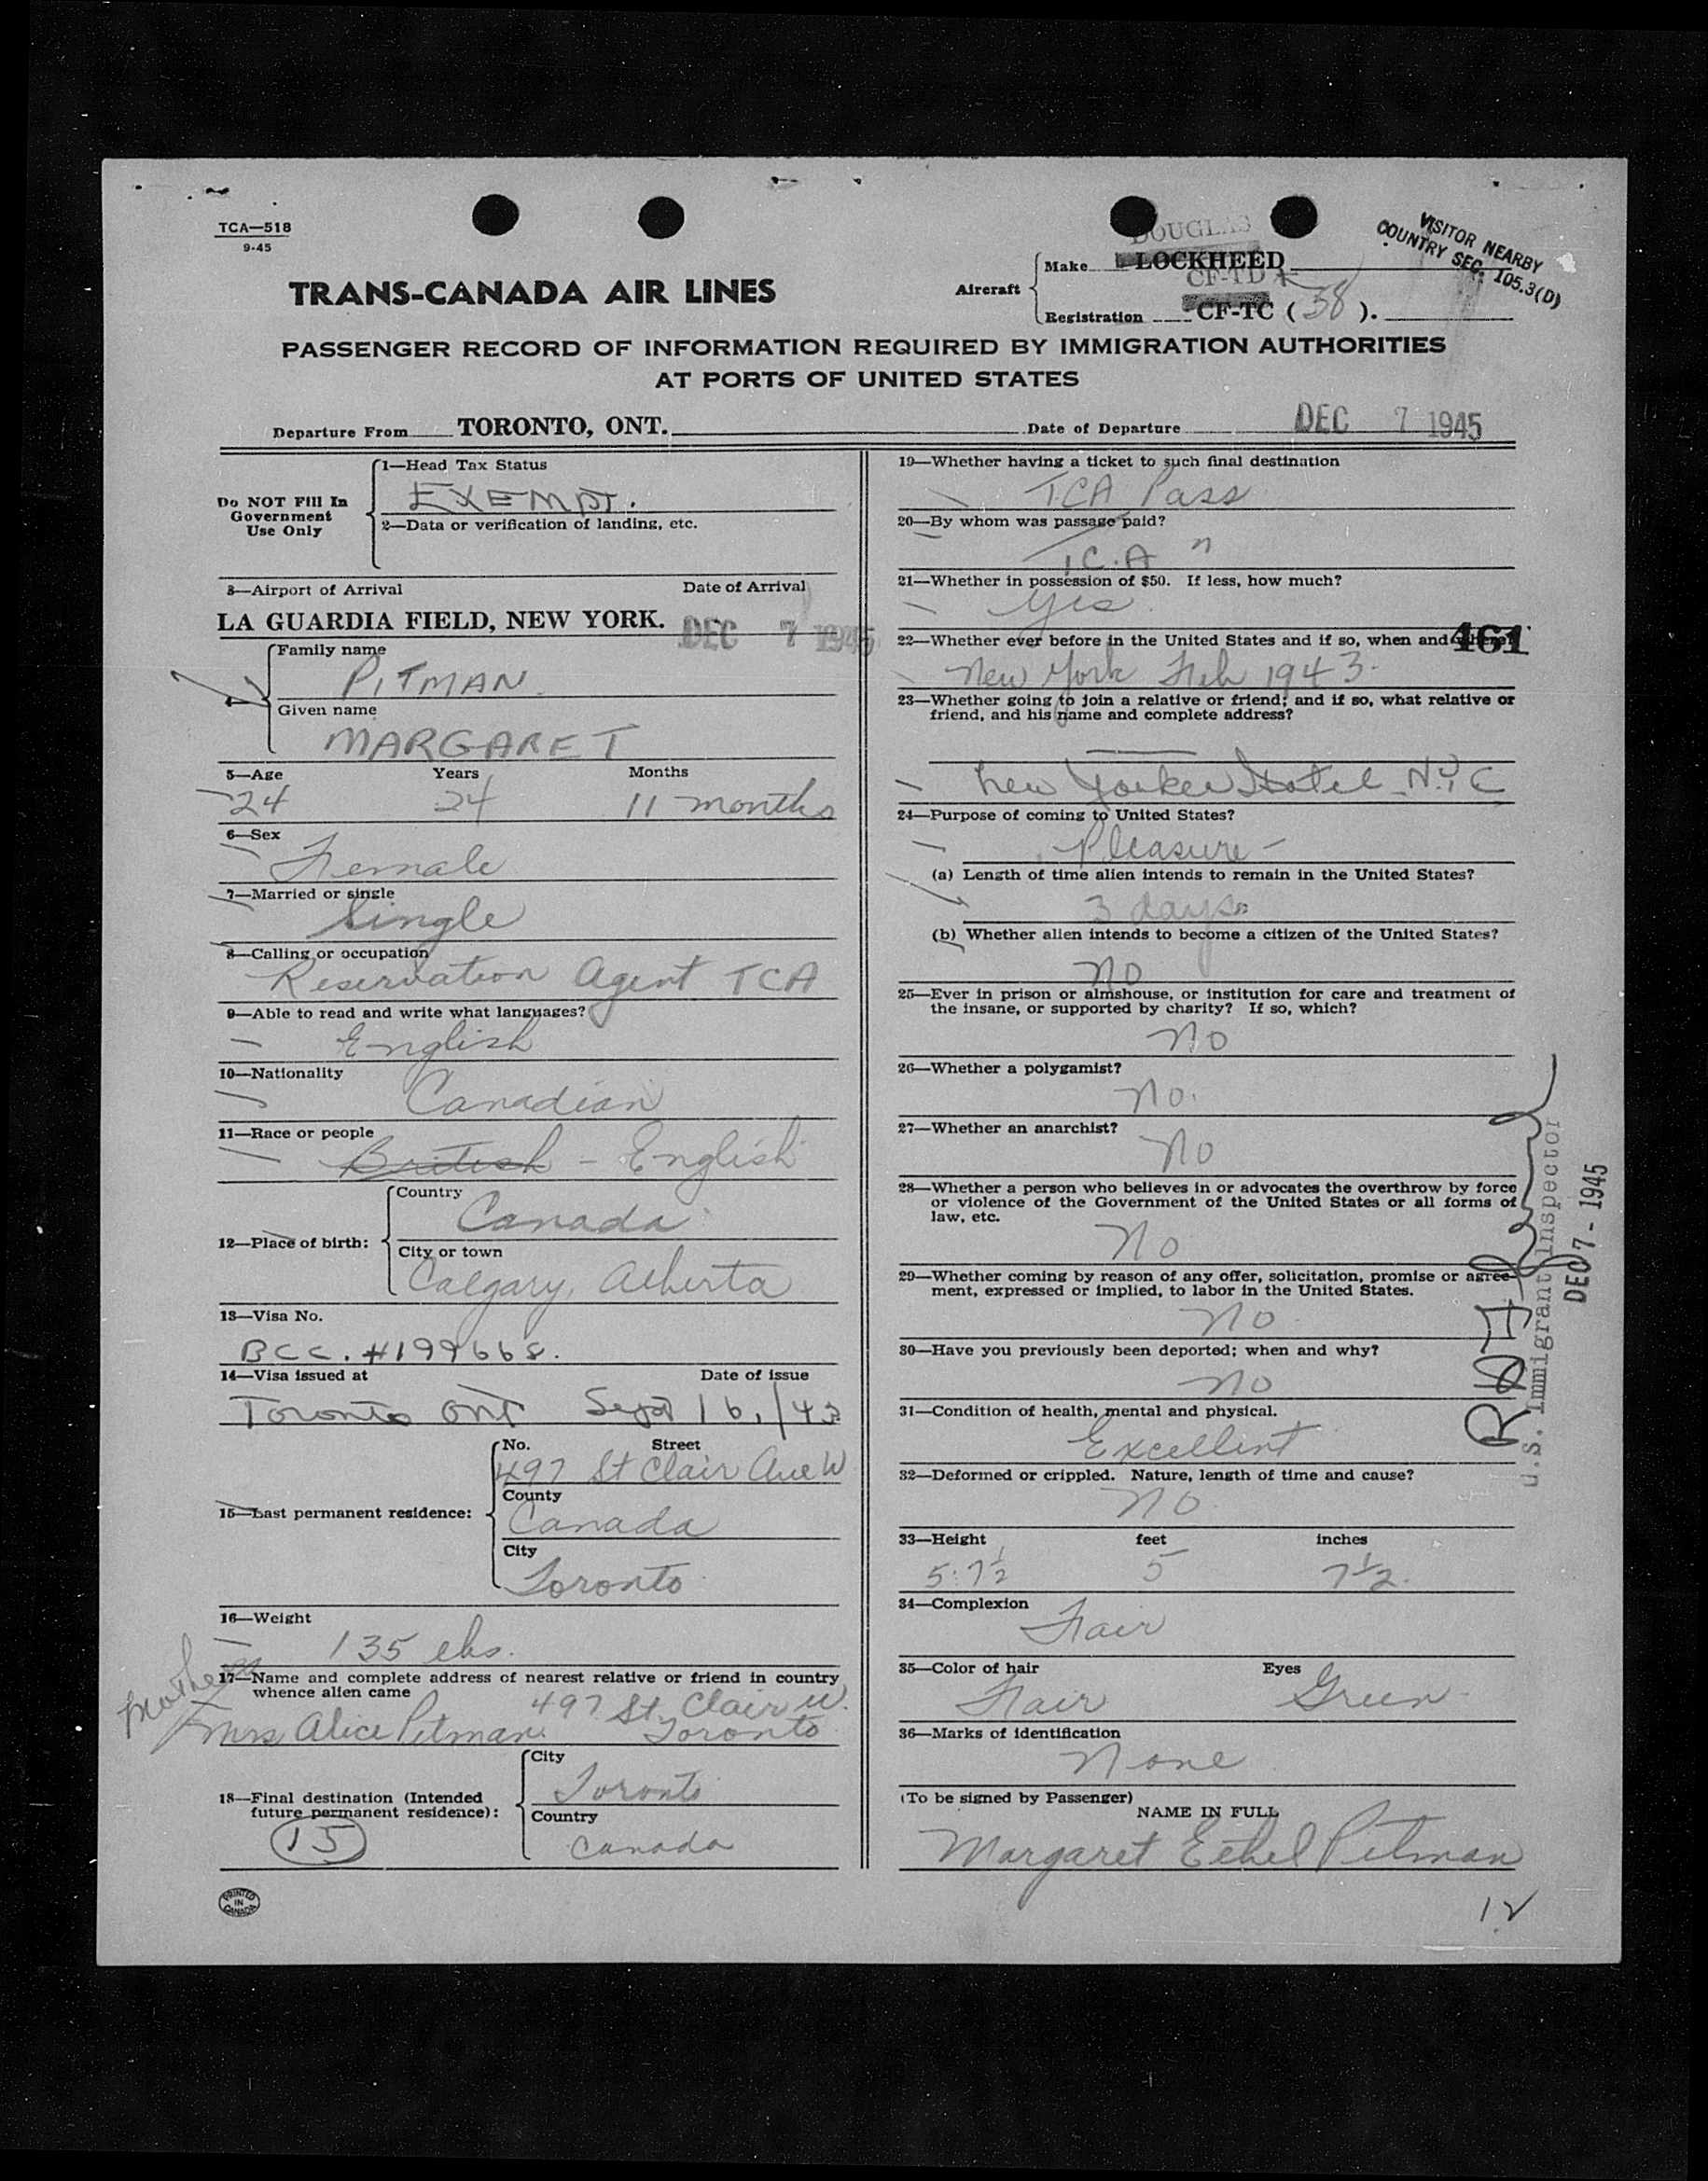 TCA—518
9-45
VISITOR NEARBY
COUNTRY SEC. 105.3(D)
DOUGLAS
Aircraft
Make LOCKHEED
CF-TD
Registration CF-TC ( 58 ).
TRANS-CANADA AIR LINES
PASSENGER RECORD OF INFORMATION REQUIRED BY IMMIGRATION AUTHORITIES
AT PORTS OF UNITED STATES
Departure From TORONTO, ONT. Date of Departure DEC 7 1945
Do NOT Fill In
Government
Use Only
1—Head Tax Status
EXEMPT.
2—Data or verification of landing, etc.
3—Airport of Arrival Date of Arrival
LA GUARDIA FIELD, NEW YORK. DEC 7 1945
Family name
PITMAN
4
Given name
MARGARET
5—Age Years Months
24 24 11 months
6—Sex
Female
7—Married or single
Single
8—Calling or occupation
Reservation Agent TCA
9—Able to read and write what languages?
English
10—Nationality
Canadian
11—Race or people
British - English
12—Place of birth:
Country
Canada
City or town
Calgary, Alberta
13—Visa No.
BCC. #199668.
14—Visa issued at Date of issue
Toronto Ont Sept 16, /43
15—Last permanent residence:
No. Street
497 St Clair Ave W
County
Canada
City
Toronto
16—Weight
135 lbs.
17—Name and complete address of nearest relative or friend in country
whence alien came
mother
497 St. Clair W.
Mrs Alice Pitman. Toronto
18—Final destination (Intended
future permanent residence):
City
Toronto
Country
Canada
15
PRINTED
IN
CANADA
19—Whether having a ticket to such final destination
TCA Pass
20—By whom was passage paid?
T.C.A "
21—Whether in possession of $50. If less, how much?
Yes
22—Whether ever before in the United States and if so, when and where?
461
New York Feb 1943.
23—Whether going to join a relative or friend; and if so, what relative or
friend, and his name and complete address?
New Yorker Hotel N.Y.C
24—Purpose of coming to United States?
Pleasure -
(a) Length of time alien intends to remain in the United States?
3 days
(b) Whether alien intends to become a citizen of the United States?
No
25—Ever in prison or almshouse, or institution for care and treatment of
the insane, or supported by charity? If so, which?
No
26—Whether a polygamist?
No.
27—Whether an anarchist?
No
28—Whether a person who believes in or advocates the overthrow by force
or violence of the Government of the United States or all forms of
law, etc.
No
29—Whether coming by reason of any offer, solicitation, promise or agree-
ment, expressed or implied, to labor in the United States.
No
30—Have you previously been deported; when and why?
No
31—Condition of health, mental and physical.
Excellent
32—Deformed or crippled. Nature, length of time and cause?
No
33—Height feet inches
5:7½ 5 7½.
34—Complexion
Fair
35—Color of hair Eyes
Fair Green
36—Marks of identification
None
(To be signed by Passenger)
NAME IN FULL
Margaret Ethel Pitman
12
U.S. Immigrant Inspector
DEC 7 - 1945